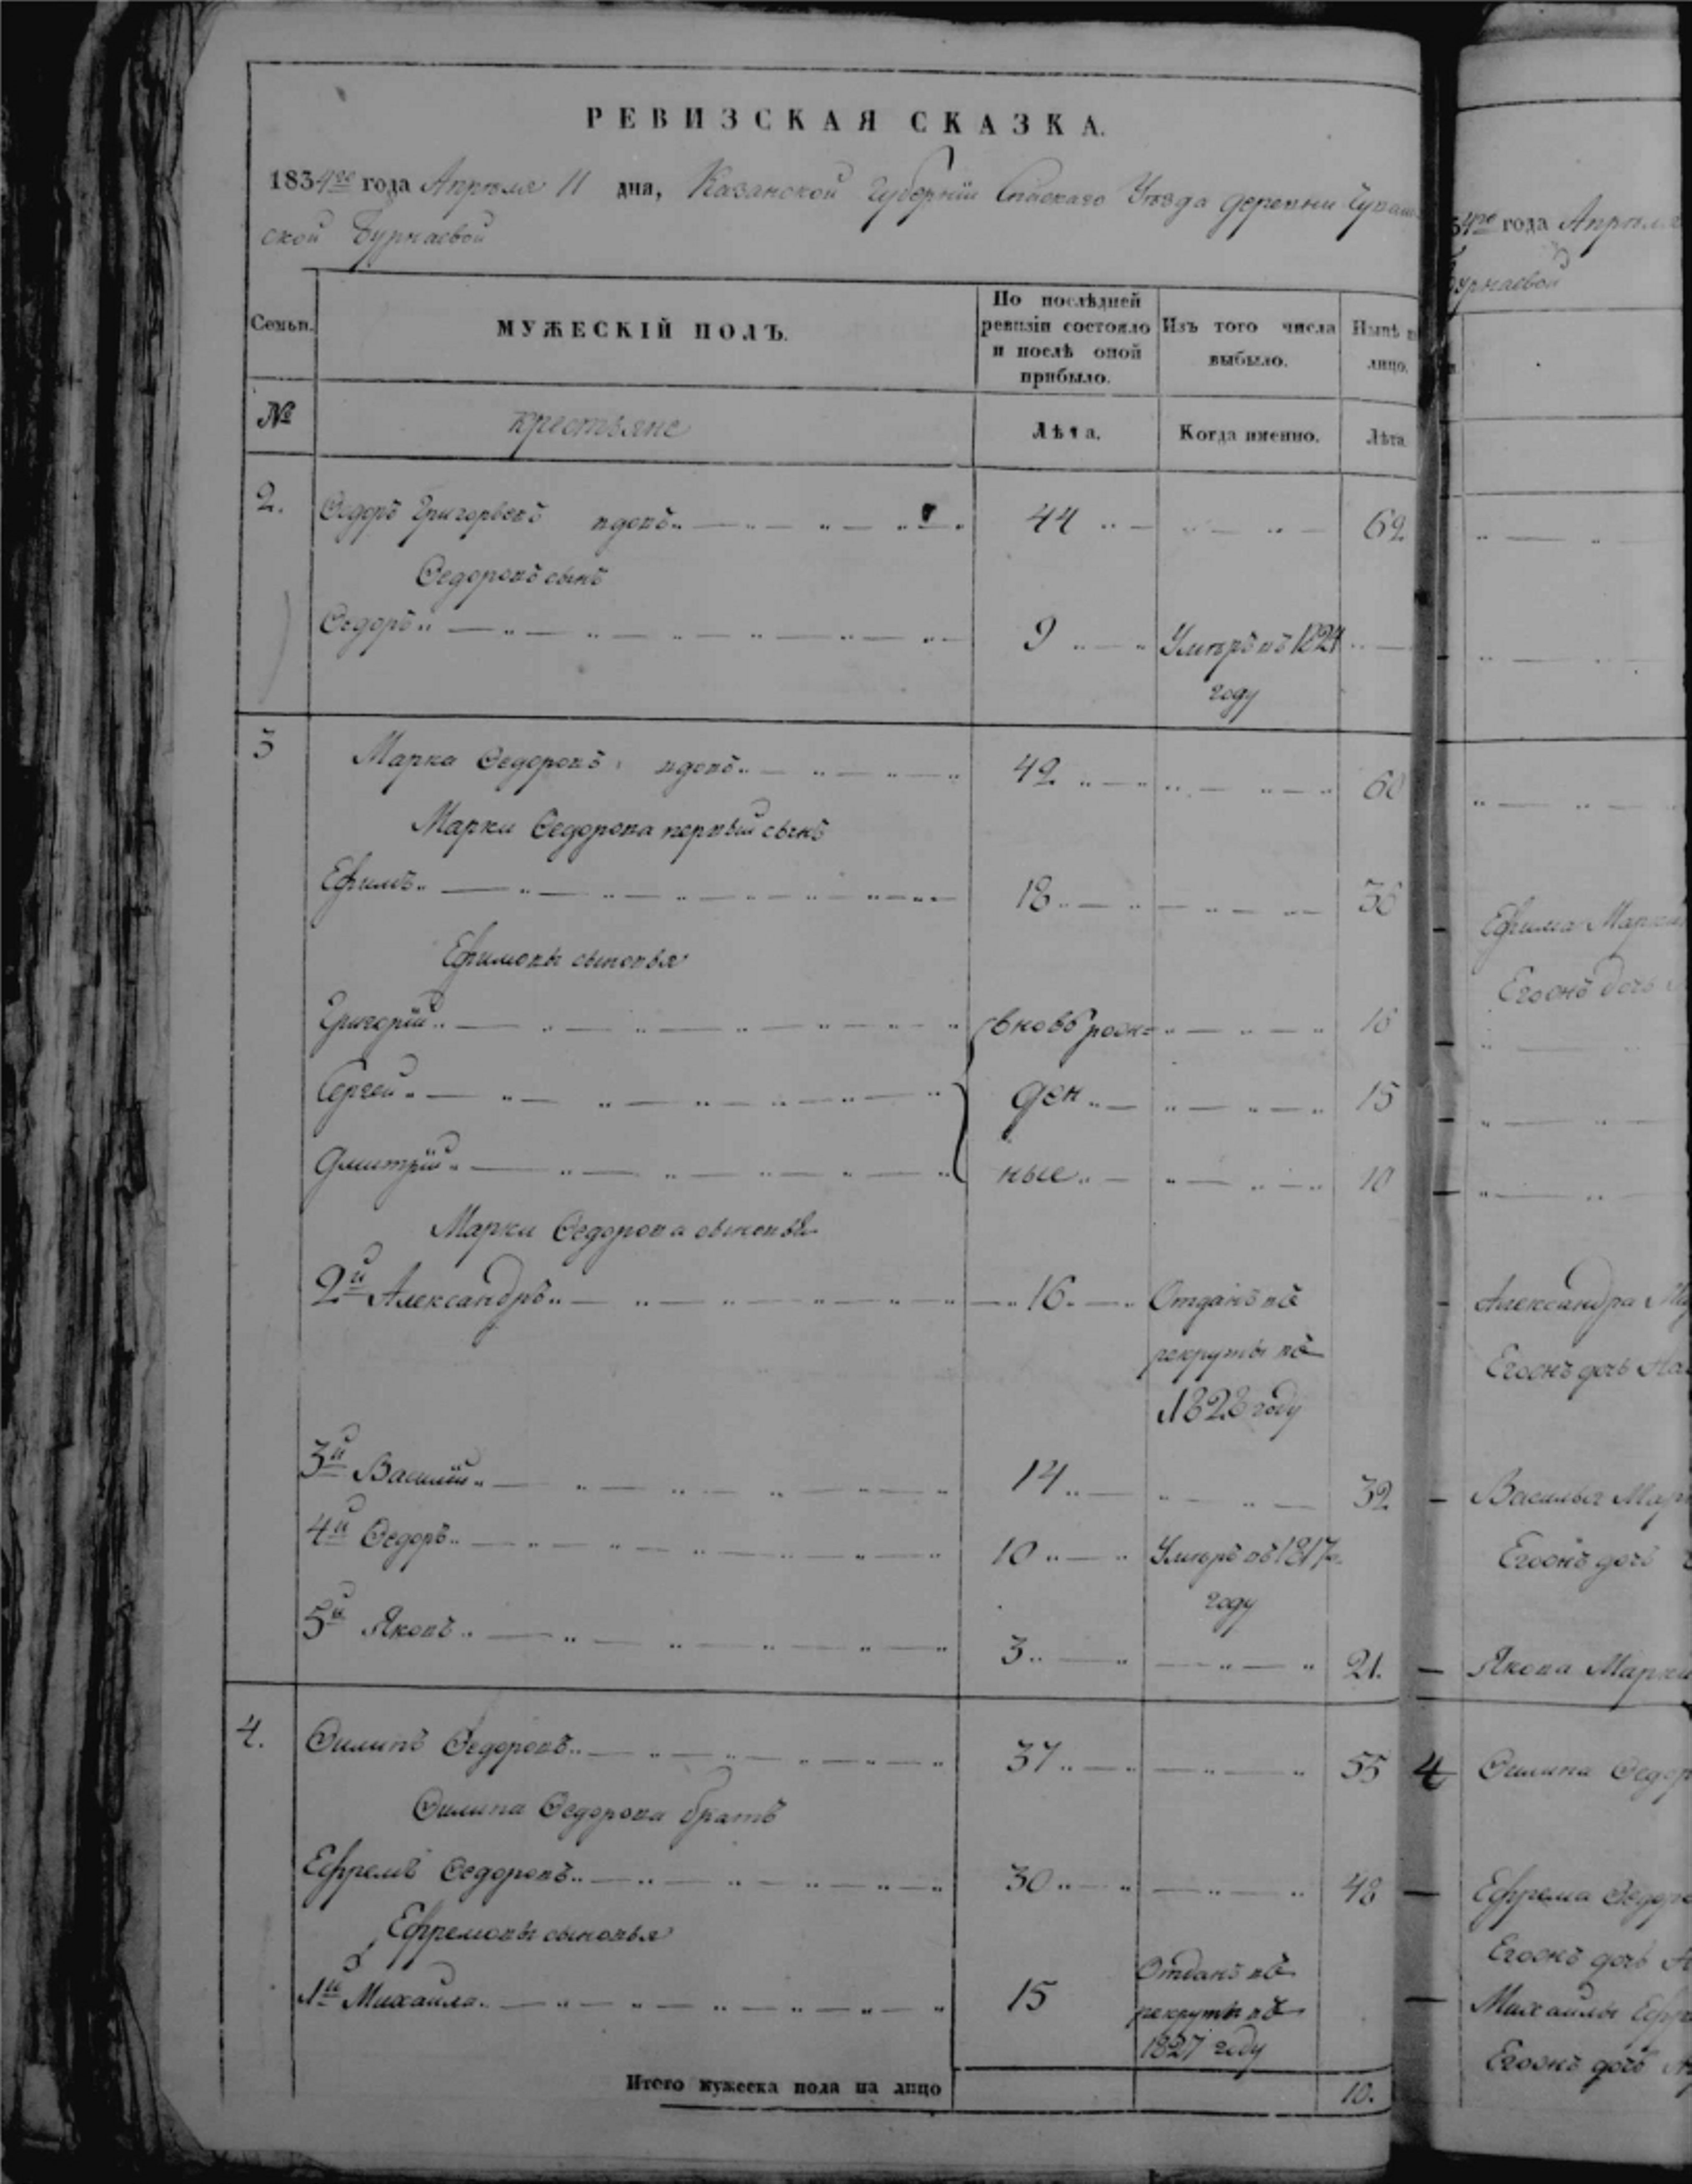 РЕВИЗСКАЯ СКАЗКА.
1834го года Апреля 11 дня, Казанской Губернии Спаскаго Уезда деревни Чуваш
ской Бурнаевой
Семьи. МУЖЕСКІЙ ПОЛЪ. По послѣдней ревизіи состояло и послѣ оной прибыло. Изъ того числа выбыло. Нынѣ на лицо.
№ крестьяне Лѣта. Когда именно. Лѣта
2. Ѳедоръ Григорьевъ вдовъ 44 62
Ѳедоровъ сынъ
Ѳедоръ 9 Умеръ въ 1824
году
3 Марка Ѳедоровъ вдовъ 42 60
Марки Ѳедорова первый сынъ
Ефимъ 18 36
Ефимовы сыновья
Григорій вновь рож= 16
Сергей ден 15
Дмитрій ные 10
Марки Ѳедорова сыновья
2й Александръ 16 Отданъ въ
рекруты въ
1828 году
3й Василій 14 32
4й Ѳедоръ 10 Умеръ въ 1817
году
5й Яковъ 3 21.
4. Филипъ Ѳедоровъ 37 55
Филипа Ѳедорова братъ
Ефремъ Ѳедоровъ 30 48
Ефремовы сыновья
1й Михаила 15 Отданъ въ
рекруты въ
1827 году
Итого мужеска пола на лицо 10.
4го года Апреля
Бурнаевой
Ефима Марки
Егоонъ дочь
Александра
Егоонъ дочь
Василья Мар
Егоонъ дочь
Якова Марки
4 Филипа Ѳедор
Ефрема Ѳедоро
Егоонъ дочь
Михаилы Ефре
Егоонъ дочь